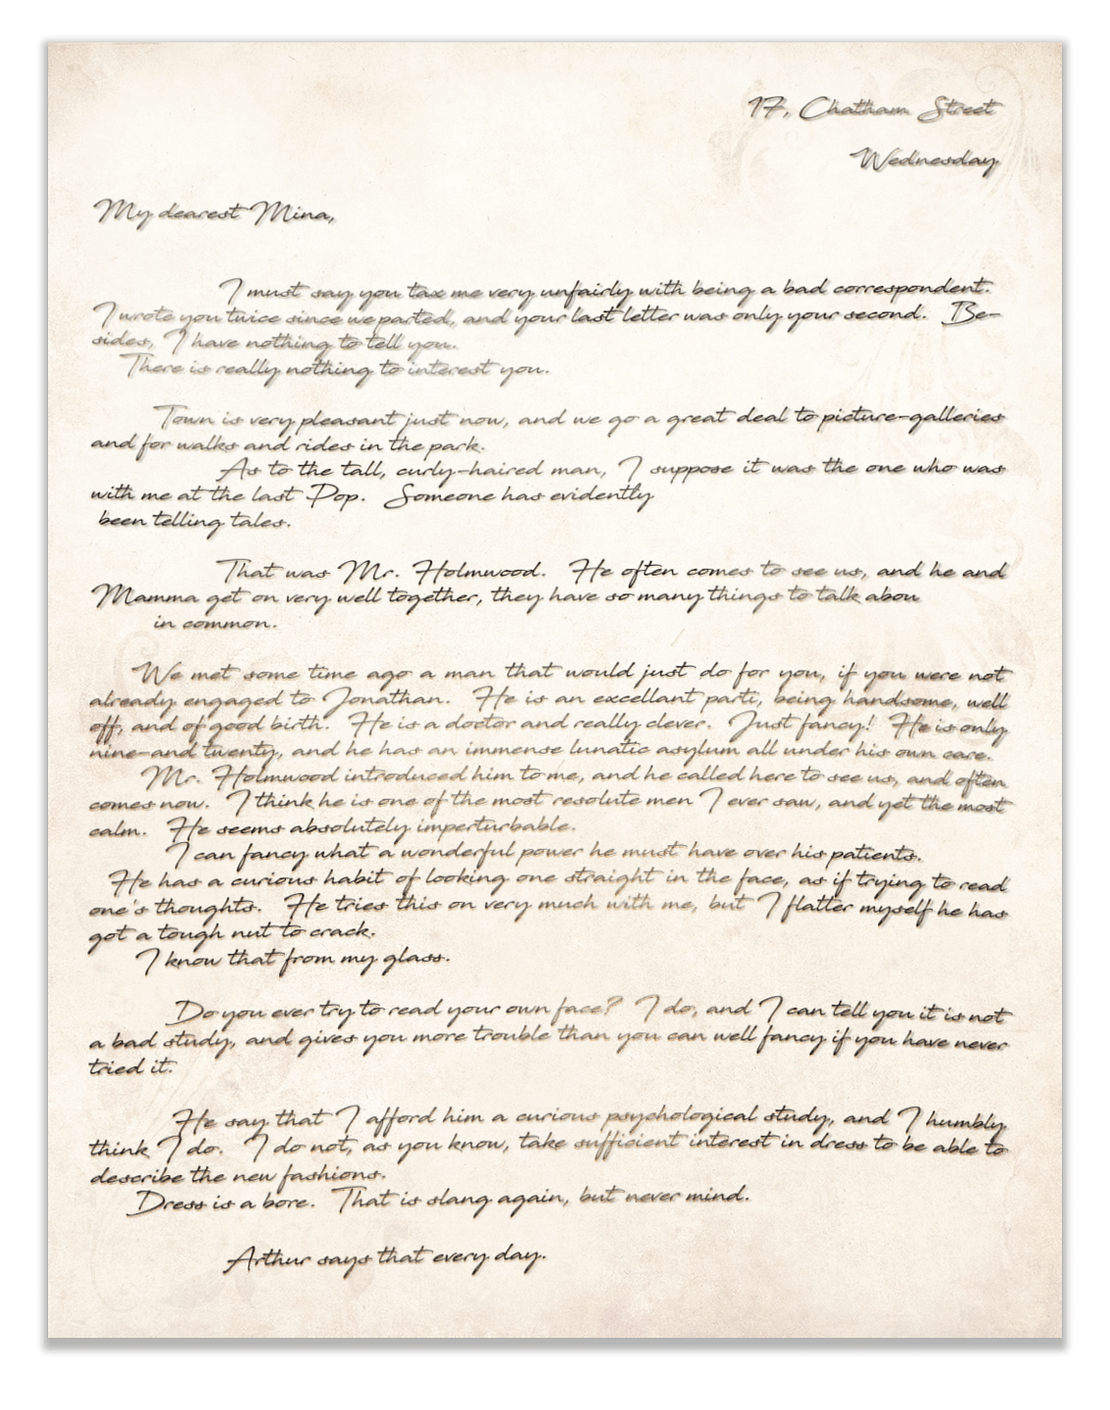 17, Chatham Street
Wednesday
My dearest Mina,
I must say you tax me very unfairly with being a bad correspondent.
I wrote you twice since we parted, and your last letter was only your second. Be-
sides, I have nothing to tell you.
There is really nothing to interest you.
Town is very pleasant just now, and we go a great deal to picture-galleries
and for walks and rides in the park.
As to the tall, curly-haired man, I suppose it was the one who was
with me at the last Pop. Someone has evidently
been telling tales.
That was Mr. Holmwood. He often comes to see us, and he and
Mamma get on very well together, they have so many things to talk abou
in common.
We met some time ago a man that would just do for you, if you were not
already engaged to Jonathan. He is an excellant parti, being handsome, well
off, and of good birth. He is a doctor and really clever. Just fancy! He is only
nine-and twenty, and he has an immense lunatic asylum all under his own care.
Mr. Holmwood introduced him to me, and he called here to see us, and often
comes now. I think he is one of the most resolute men I ever saw, and yet the most
calm. He seems absolutely imperturbable.
I can fancy what a wonderful power he must have over his patients.
He has a curious habit of looking one straight in the face, as if trying to read
one's thoughts. He tries this on very much with me, but I flatter myself he has
got a tough nut to crack.
I know that from my glass.
Do you ever try to read your own face? I do, and I can tell you it is not
a bad study, and gives you more trouble than you can well fancy if you have never
tried it.
He say that I afford him a curious psychological study, and I humbly
think I do. I do not, as you know, take sufficient interest in dress to be able to
describe the new fashions.
Dress is a bore. That is slang again, but never mind.
Arthur says that every day.